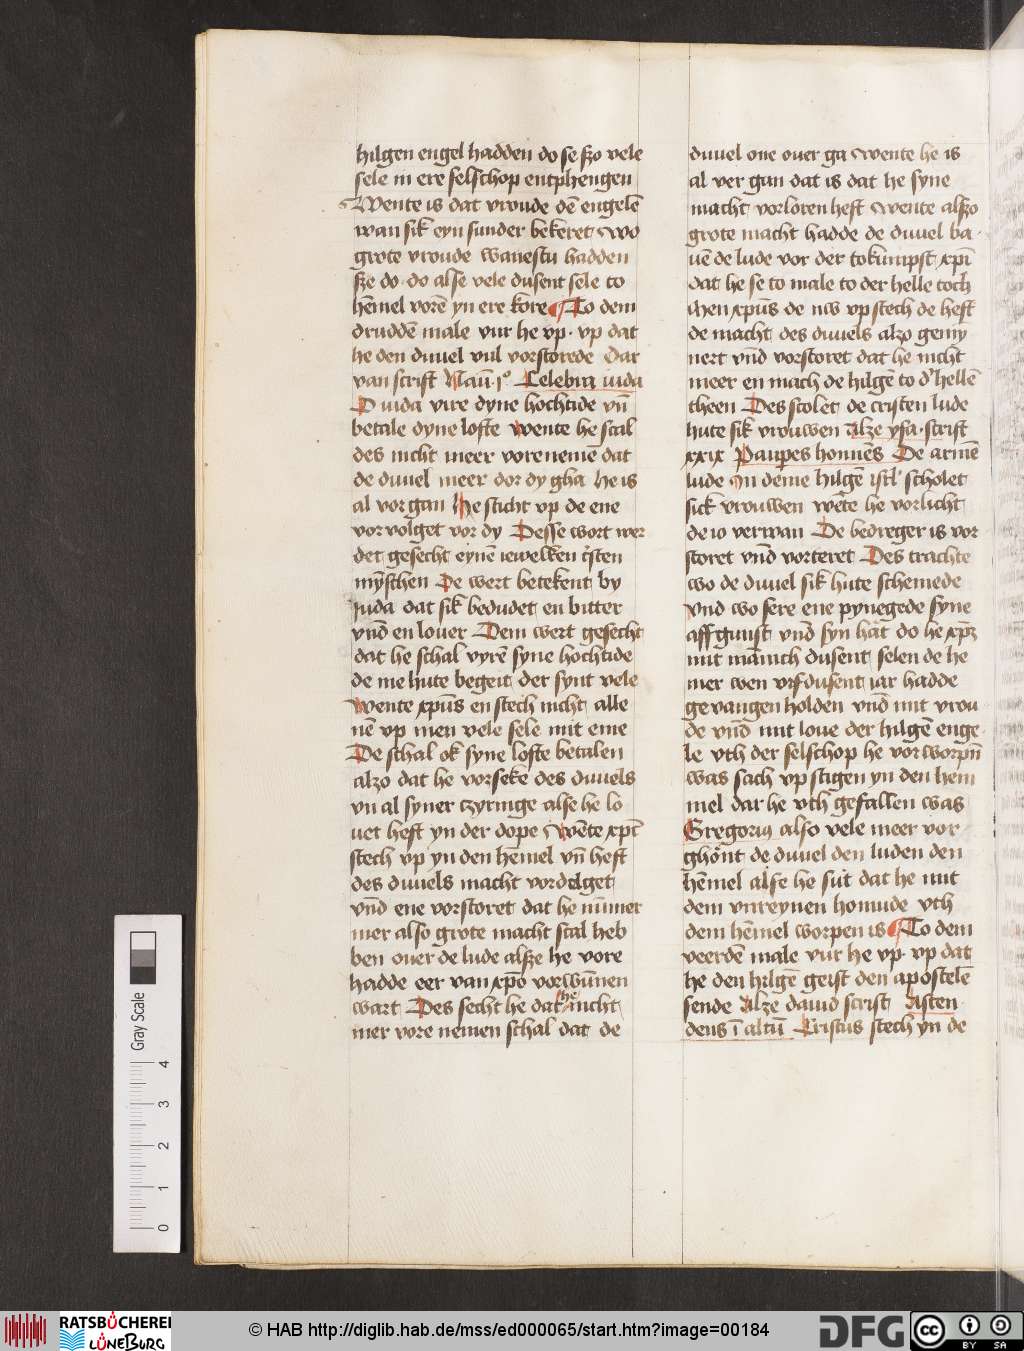 hilgen engel hadden do se szo vele
sele in ere selschop entphengen
Wente is dat vroude dē engelē
wan sik eyn sunder bekeret wo
grote vroude wanestu hadden
sze do do alse vele dusent sele to
hēmel vorē yn ere kore To dem
druddē male vur he vp vp dat
he den duuel vul vorstorede Dar
van scrift Naū j° Celebra iuda
O iuda vire dyne hochtide vn̄
betale dyne lofte wente he scal
des nicht meer vorenemē dat
de duuel meer dor dy gha He is
al vorgan He sticht vp de ene
vorvolget vor dy Desse wort wer
det gesecht eynē iewelkē cristen
mȳschen De wert betekent by
iuda dat sik bedudet en bitter
vnd en louer Dem wert gesecht
dat he schal vyrē syne hochtide
de me hute begeit der synt vele
wente xp̄us en stech nicht alle
nē vp men vele sele mit eme
De schal ok syne lofte betalen
alzo dat he vorseke des duuels
vn al syner czyringe alse he lo
uet heft yn der dope wēte xp̄c
stech vp yn den hēmel vn̄ heft
des duuels macht vordelget
vnd ene vorstoret dat he nūmer
mer also grote macht scal heb
ben ouer de lude alsze he vore
hadde eer van xp̄o vorwūnen
wart Des secht he dat he nicht
mer vore nemen schal dat de
duuel one ouer ga wente he is
al ver gan dat is dat he syne
macht vorloren heft wente alszo
grote macht hadde de duuel ba
uē de lude vor der tokumpst xp̄i
dat he se to male to der helle toch
Men xp̄us de nw vp stech de heft
de macht des duuels alzo gemy
nert vnd vorstoret dat he nicht
meer en mach de hilgē to d' hellē
theen Des scolet de cristen lude
hute sik vrouwen Alze ysa scrift
xxix Pauperes homines De armē
lude In deme hilgē isrl' scholet
sick vrouwen wēte he vorlicht
de io verwan De bedreger is vor
storet vnd vorteret Des trachte
wo de duuel sik hute schemede
vnd wo sere ene pynegede syne
affgunst vnd syn hat do he xp̄m
mit mānich dusent selen de he
mer wen vyfdusent iar hadde
gevangen holden vnd mit vrou
de vnd mit loue der hilgē enge
le vth der selschop he vorworpn̄
was sach vp stigen yn den hem
mel dar he vth gefallen was
Gregorius also vele meer vor
ghont de duuel den luden den
hēmel alse he sut dat he mit
dem vnreynen homude vth
dem hēmel worpen is To dem
veerdē male vur he vp vp dat
he den hilgē geist den apostelē
sende Alze dauid scrift Ascen
dens ī altū Cristus stech yn de
Gray Scale
0 1 2 3 4
RATSBÜCHEREI
LÜNEBURG
© HAB http://diglib.hab.de/mss/ed000065/start.htm?image=00184
DFG
cc
BY SA